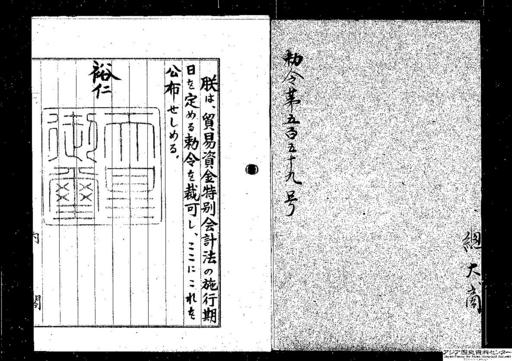 勅令第五百五十九号
總 大 商
朕は、貿易資金特別会計法の施行期
日を定める勅令を裁可し、ここにこれを
公布せしめる。
裕仁
天皇
御璽
内閣
アジア歴史資料センター